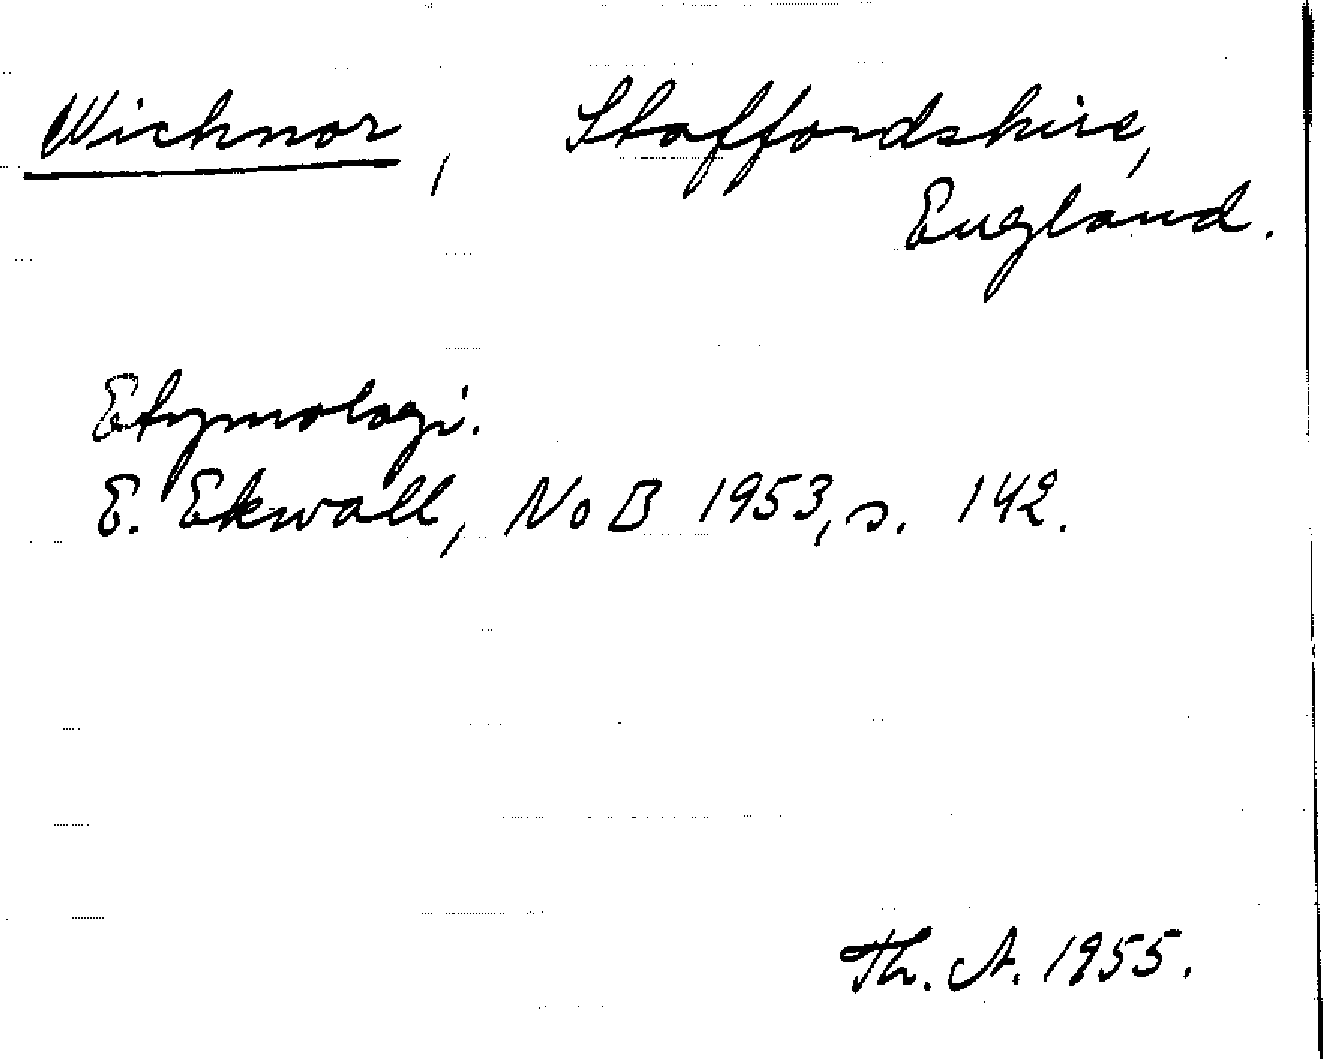 Wichnor, Staffordshire,
England.
Etymologi.
E. Ekwall, NoB 1953, s. 142.
Th. A. 1955.